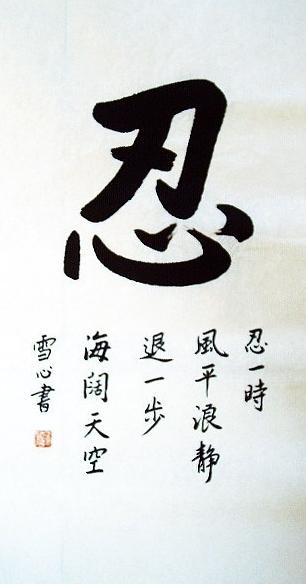 忍
忍一時
風平浪静
退一步
海闊天空
雪心書